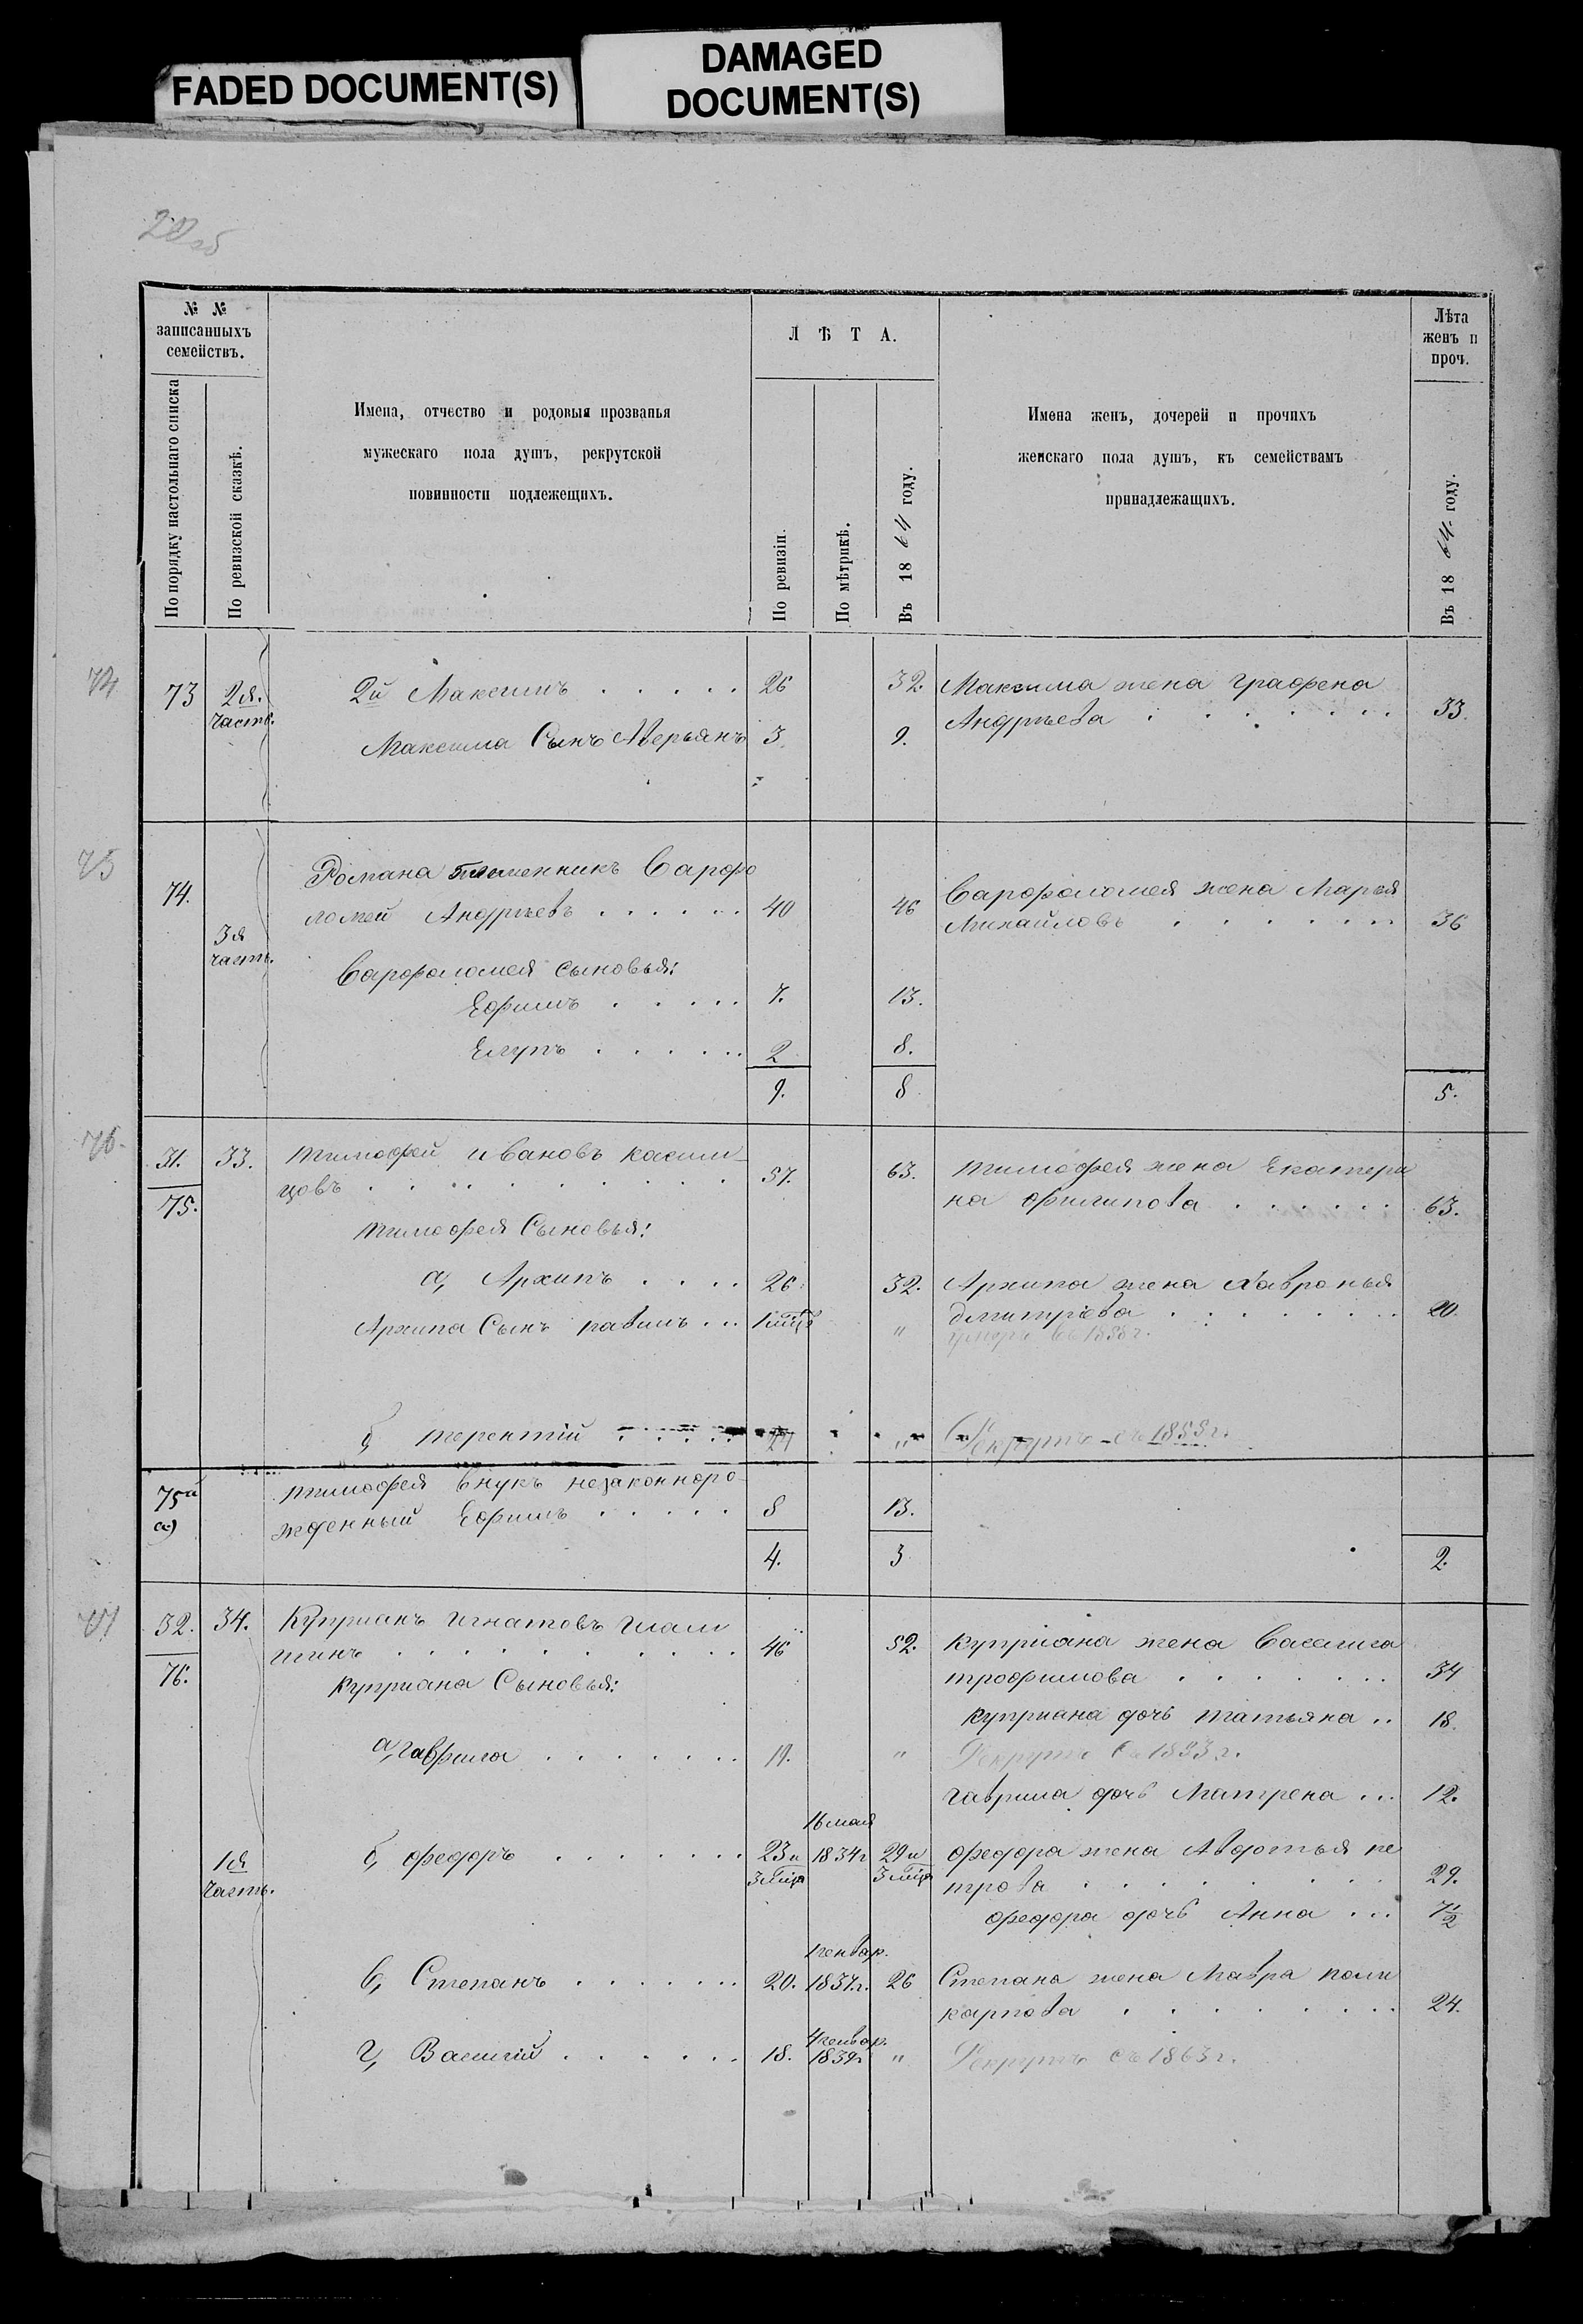 FADED DOCUMENT(S)
DAMAGED
DOCUMENT(S)
20 об
№ №
записанныхъ
семействъ.
По порядку настольнаго списка
По ревизской сказкѣ.
Имена, отчество и родовыя прозванья
мужескаго пола душъ, рекрутской
повинности подлежещихъ.
ЛѢТА.
По ревизіи.
По мѣтрикѣ.
Въ 18 64 году.
Имена женъ, дочерей и прочихъ
женскаго пола душъ, къ семействамъ
принадлежащихъ.
Лѣта
женъ и
проч.
Въ 18 64 году.
74
73 2я. 2й Максимъ 26 32. Максима жена Графена
часть. Андрѣева 33.
Максима Сынъ Аверьянъ 3. 9.
75
74. Романа племенникъ Варфо
ломей Андрѣевъ 40 46 Варфоломея жена Марья
Михайловъ 36
3я
часть.
Варфоломея сыновья:
Ефимъ 7. 13.
Егупъ 2 8.
9. 8 5.
76.
31. 33. Тимофей Ивановъ касим-
цовъ 57. 63. Тимофея жена Екатери
75. на Филипова 63.
Тимофея Сыновья:
а, Архипъ 26. 32. Архипа жена Хавронья
Дмитріева 20.
Архипа Сынъ 1 мѣц "
умеръ въ 1858 г.
б, терентій 24 " Рекрутъ съ 1855 г.
75й
а)
Тимофея внукъ незаконноро
жденный Ефимъ 8 13.
4. 3 2.
77
32. 34. Куприанъ Игнатовъ шали
шинъ 46 52. Куприана жена Василиса
76. трофимова 34
Куприана Сыновья:
Куприана дочь татьяна 18.
а, гаврила 19. " Рекрутъ съ 1853 г.
гаврила дочь Матрена 12.
16 мая
1я
часть.
б, федоръ 23 и 1834 г 29 и федора жена Авдотья пе
3 мѣца 3 мѣца трова 29.
федора дочь Анна 7 1/2
1 генвар.
в, Степанъ 20. 1837 г. 26 Степана жена Мавра поли
карпова 24.
4 генвар.
г, Василій 18. 1839 г " Рекрутъ съ 1863 г.